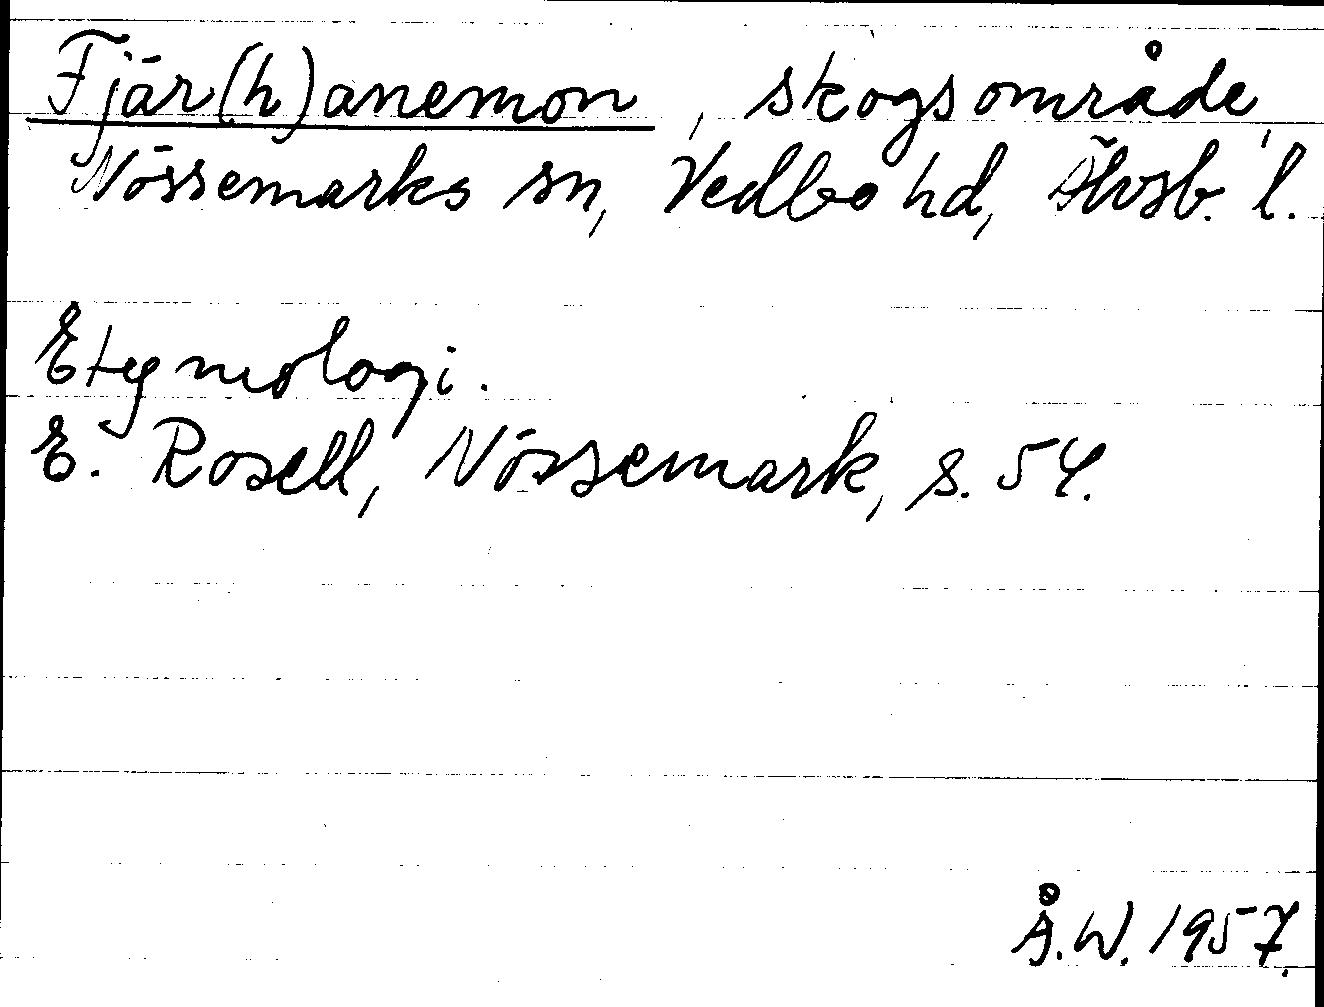 Fjär(h)anemon, skogsområde,
Nössemarks sn, Vedbo hd, Älvsb. l.
Etymologi.
E. Rosell, Nössemark, s. 54.
Å.W. 1957.